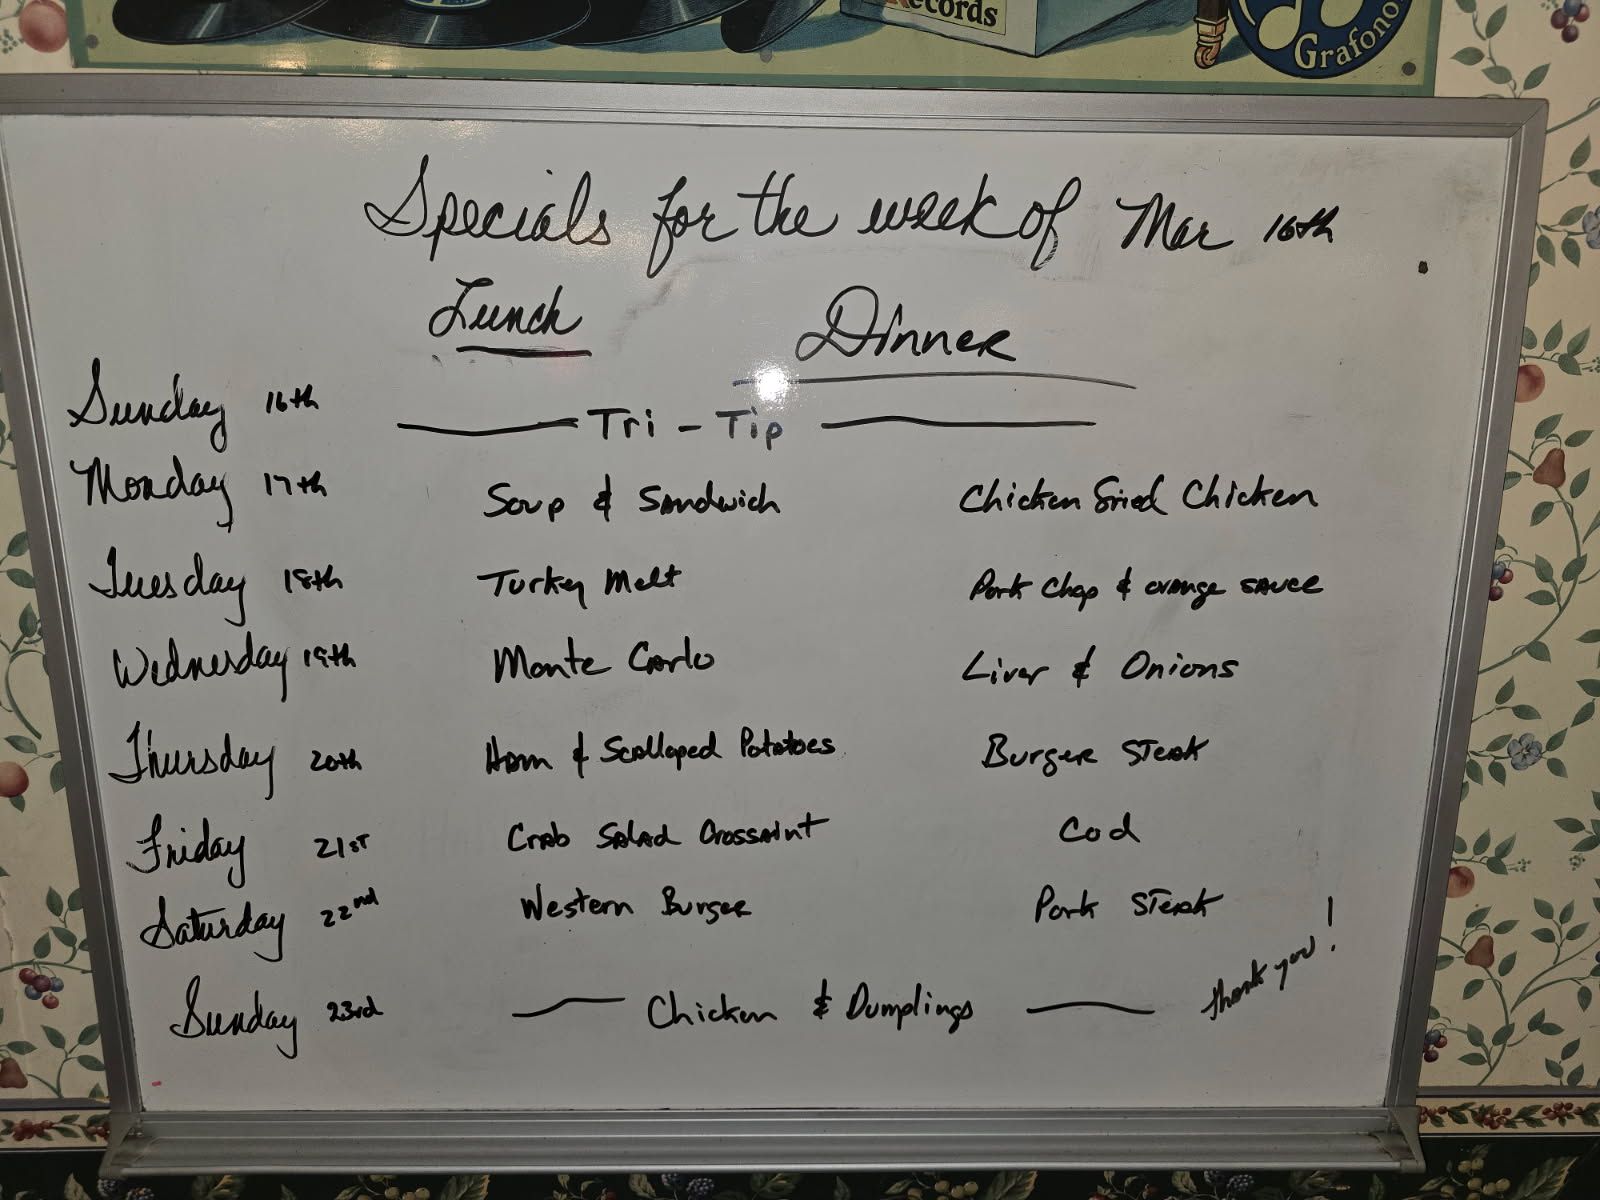 Records
Grafono
Specials for the week of Mar 16th
Lunch Dinner
Sunday 16th Tri - Tip
Monday 17th Soup & Sandwich Chicken Fried Chicken
Tuesday 18th Turkey Melt Pork Chop & orange sauce
Wednesday 19th Monte Carlo Liver & Onions
Thursday 20th Ham & Scalloped Potatoes Burger Steak
Friday 21st Crab Salad Crossaint Cod
Saturday 22nd Western Burger Pork Steak
Sunday 23rd Chicken & Dumplings Thank you!